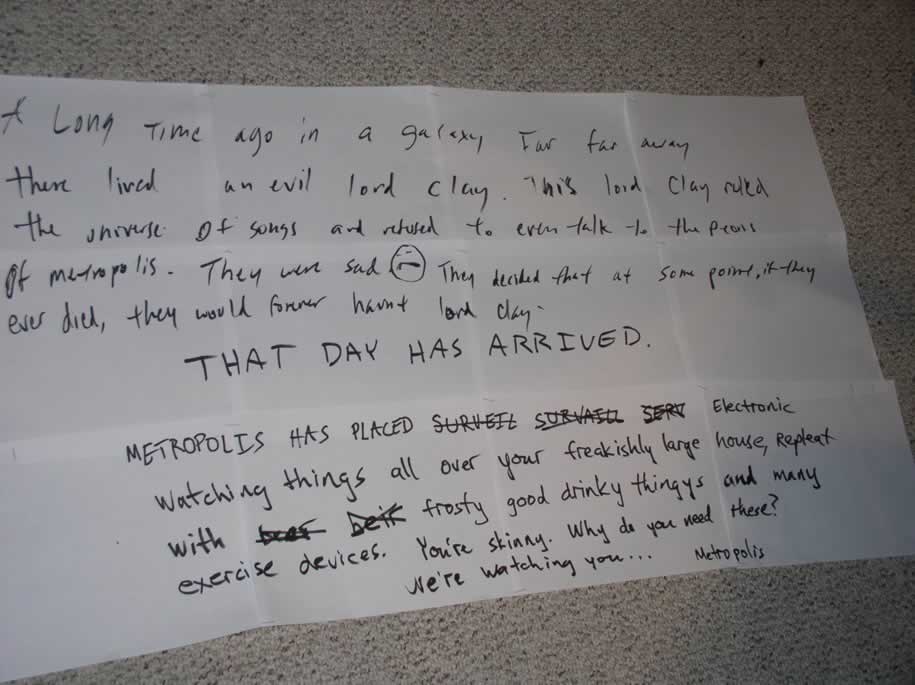 A Long Time ago in a galaxy Far far away
there lived an evil lord clay. This lord Clay ruled
the universe Of songs and refused to even talk to the peons
Of metropolis. They were sad ☹ They decided that at some point, if they
ever died, they would forever haunt lord clay.
THAT DAY HAS ARRIVED.
METROPOLIS HAS PLACED SURVEIL SURVAILL SERV Electronic
watching things all over your freakishly large house, Repleat
with beer beir frosty good drinky thingys and many
exercise devices. You're skinny. Why do you need these?
We're watching you... Metropolis